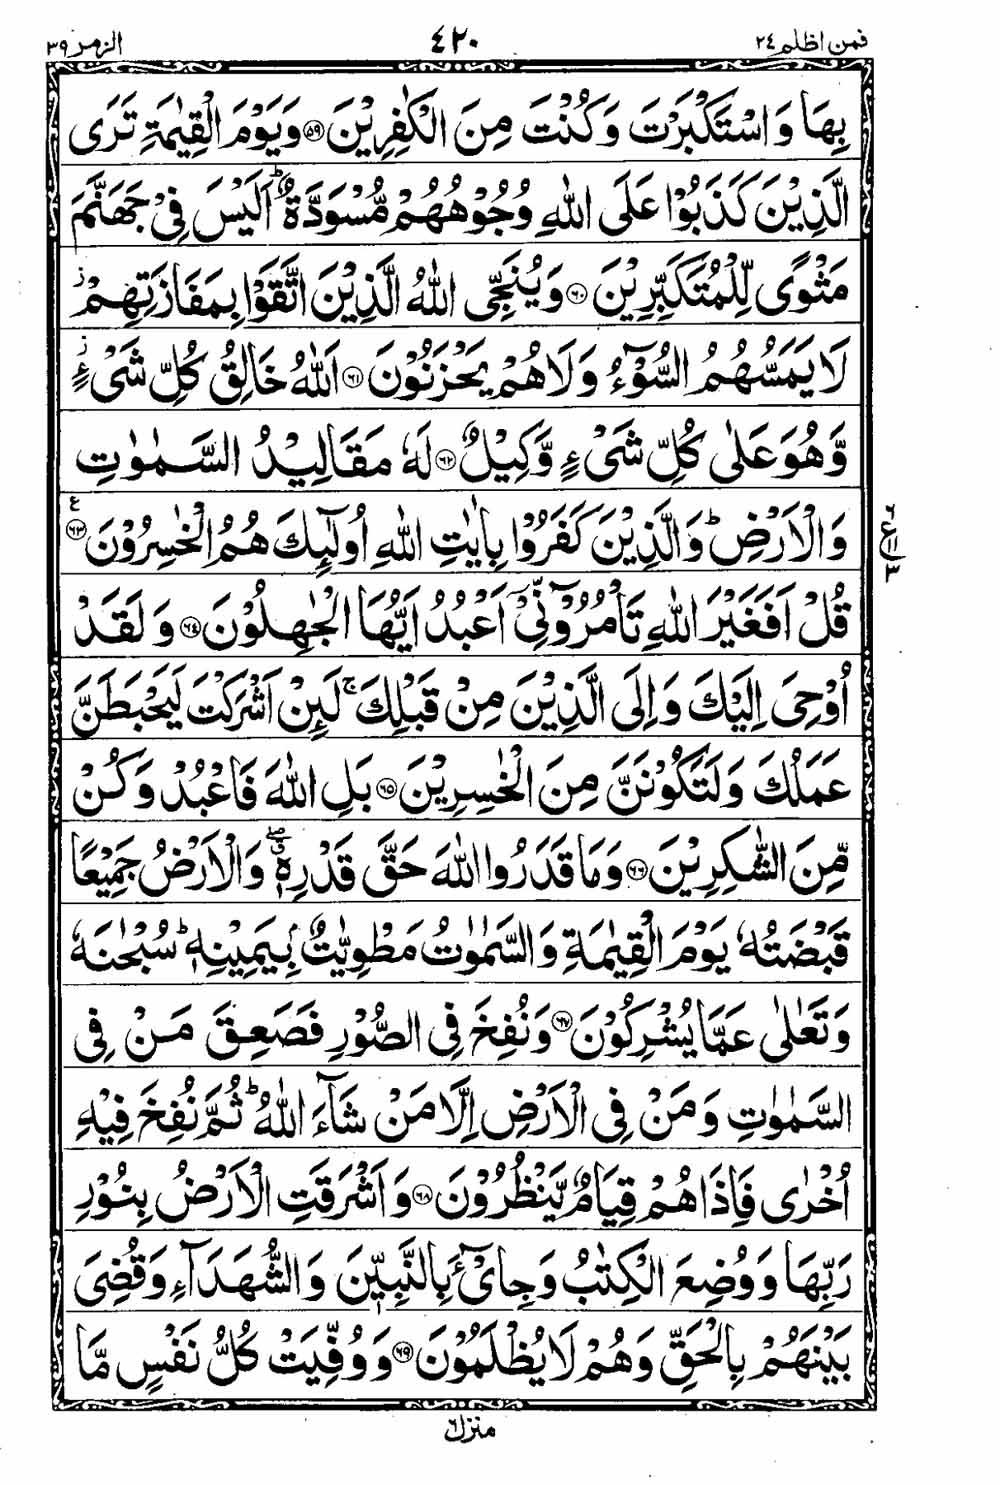 فمن اظلم ٢٤ ٤٢٠ الزمر ٣٩
بِهَا وَاسْتَكْبَرْتَ وَكُنْتَ مِنَ الْكٰفِرِيْنَ ﴿٥٩﴾ وَيَوْمَ الْقِيٰمَةِ تَرَى
الَّذِيْنَ كَذَبُوْا عَلَى اللّٰهِ وُجُوْهُهُمْ مُّسْوَدَّةٌ ؕ اَلَيْسَ فِىْ جَهَنَّمَ
مَثْوًى لِّلْمُتَكَبِّرِيْنَ ﴿٦٠﴾ وَيُنَجِّى اللّٰهُ الَّذِيْنَ اتَّقَوْا بِمَفَازَتِهِمْ ؗ
لَا يَمَسُّهُمُ السُّوْٓءُ وَلَا هُمْ يَحْزَنُوْنَ ﴿٦١﴾ اَللّٰهُ خَالِقُ كُلِّ شَىْءٍ ؗ
وَّهُوَ عَلٰى كُلِّ شَىْءٍ وَّكِيْلٌ ﴿٦٢﴾ لَهٗ مَقَالِيْدُ السَّمٰوٰتِ
وَالْاَرْضِ ؕ وَالَّذِيْنَ كَفَرُوْا بِاٰيٰتِ اللّٰهِ اُولٰٓئِكَ هُمُ الْخٰسِرُوْنَ ﴿٦٣﴾ ع
قُلْ اَفَغَيْرَ اللّٰهِ تَاْمُرُوْٓنِّىْٓ اَعْبُدُ اَيُّهَا الْجٰهِلُوْنَ ﴿٦٤﴾ وَلَقَدْ
اُوْحِىَ اِلَيْكَ وَاِلَى الَّذِيْنَ مِنْ قَبْلِكَ ۚ لَئِنْ اَشْرَكْتَ لَيَحْبَطَنَّ
عَمَلُكَ وَلَتَكُوْنَنَّ مِنَ الْخٰسِرِيْنَ ﴿٦٥﴾ بَلِ اللّٰهَ فَاعْبُدْ وَكُنْ
مِّنَ الشّٰكِرِيْنَ ﴿٦٦﴾ وَمَا قَدَرُوا اللّٰهَ حَقَّ قَدْرِهٖ ۖ وَالْاَرْضُ جَمِيْعًا
قَبْضَتُهٗ يَوْمَ الْقِيٰمَةِ وَالسَّمٰوٰتُ مَطْوِيّٰتٌۢ بِيَمِيْنِهٖ ؕ سُبْحٰنَهٗ
وَتَعٰلٰى عَمَّا يُشْرِكُوْنَ ﴿٦٧﴾ وَنُفِخَ فِى الصُّوْرِ فَصَعِقَ مَنْ فِى
السَّمٰوٰتِ وَمَنْ فِى الْاَرْضِ اِلَّا مَنْ شَآءَ اللّٰهُ ؕ ثُمَّ نُفِخَ فِيْهِ
اُخْرٰى فَاِذَا هُمْ قِيَامٌ يَّنْظُرُوْنَ ﴿٦٨﴾ وَاَشْرَقَتِ الْاَرْضُ بِنُوْرِ
رَبِّهَا وَوُضِعَ الْكِتٰبُ وَجِاىْٓءَ بِالنَّبِيّٖنَ وَالشُّهَدَآءِ وَقُضِىَ
بَيْنَهُمْ بِالْحَقِّ وَهُمْ لَا يُظْلَمُوْنَ ﴿٦٩﴾ وَوُفِّيَتْ كُلُّ نَفْسٍ مَّا
منزل ٦